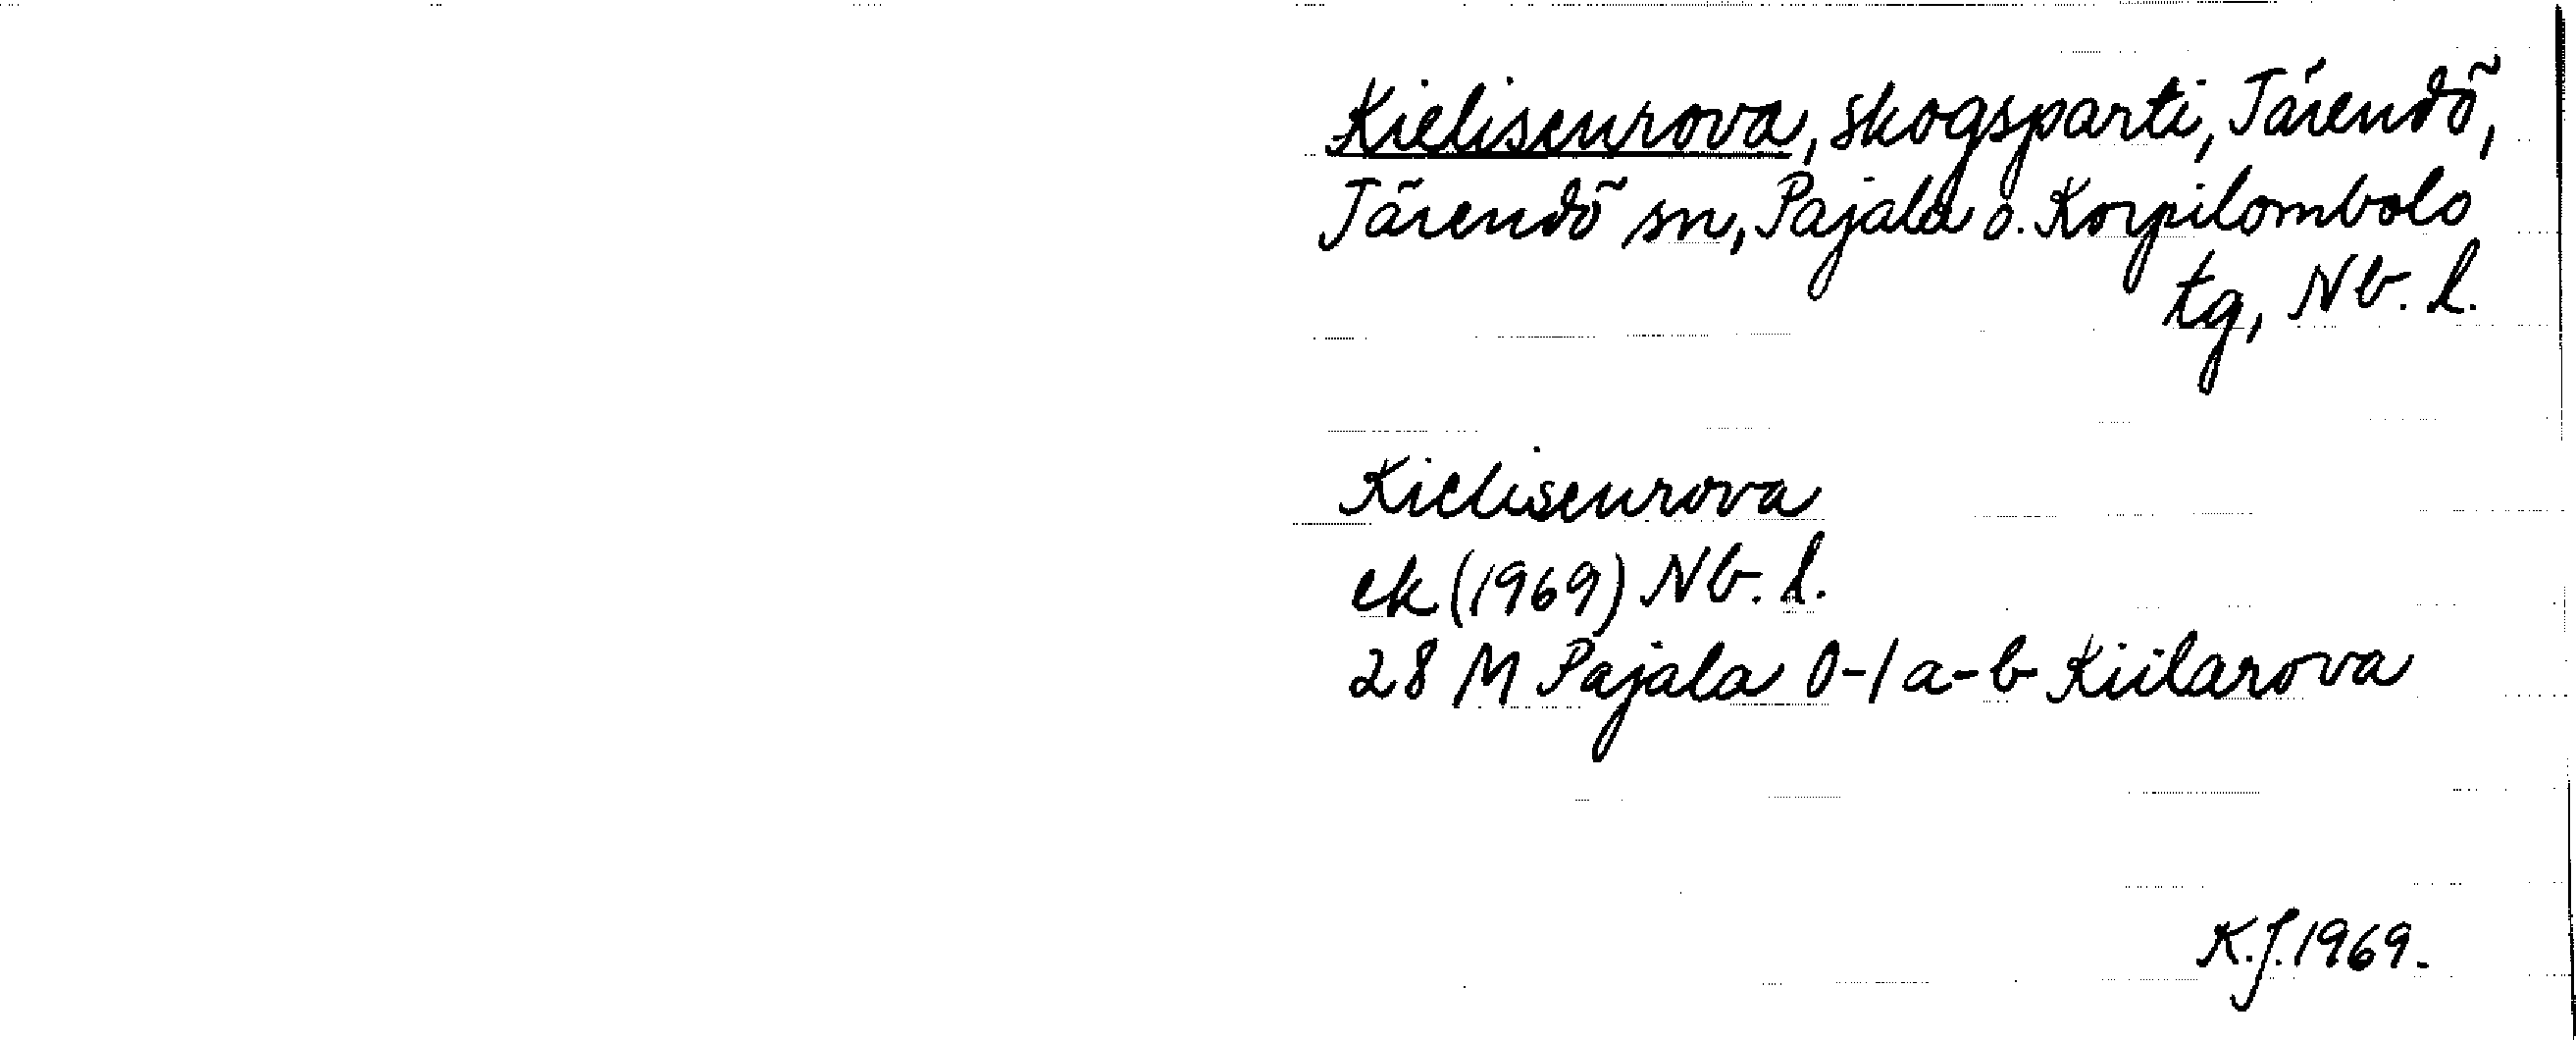 Kielisenrova, skogsparti, Tärendö,
Tärendö sn, Pajala o. Korpilombolo
tg, Nb. l.
Kielisenrova
ek (1969) Nb. l.
28 M Pajala 0-1 a-b Kiilarova
K.J. 1969.